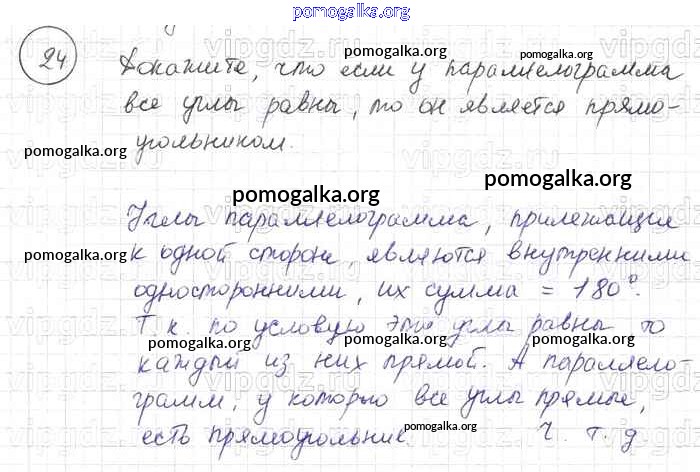 pomogalka.org
24 Докажите, что если у параллелограмма
pomogalka.org pomogalka.org
все углы равны, то он является прямо-
угольником.
pomogalka.org
pomogalka.org pomogalka.org
Углы параллелограмма, прилежащие
к одной стороне, являются внутренними
pomogalka.org
односторонними, их сумма = 180°.
Т. к. по условую эти углы равны то
pomogalka.org
каждый из них прямой. А параллело-
грамм, у которого все углы прямые,
pomogalka.org
есть прямоугольник. ч. т. д.
pomogalka.org
pomogalka.org